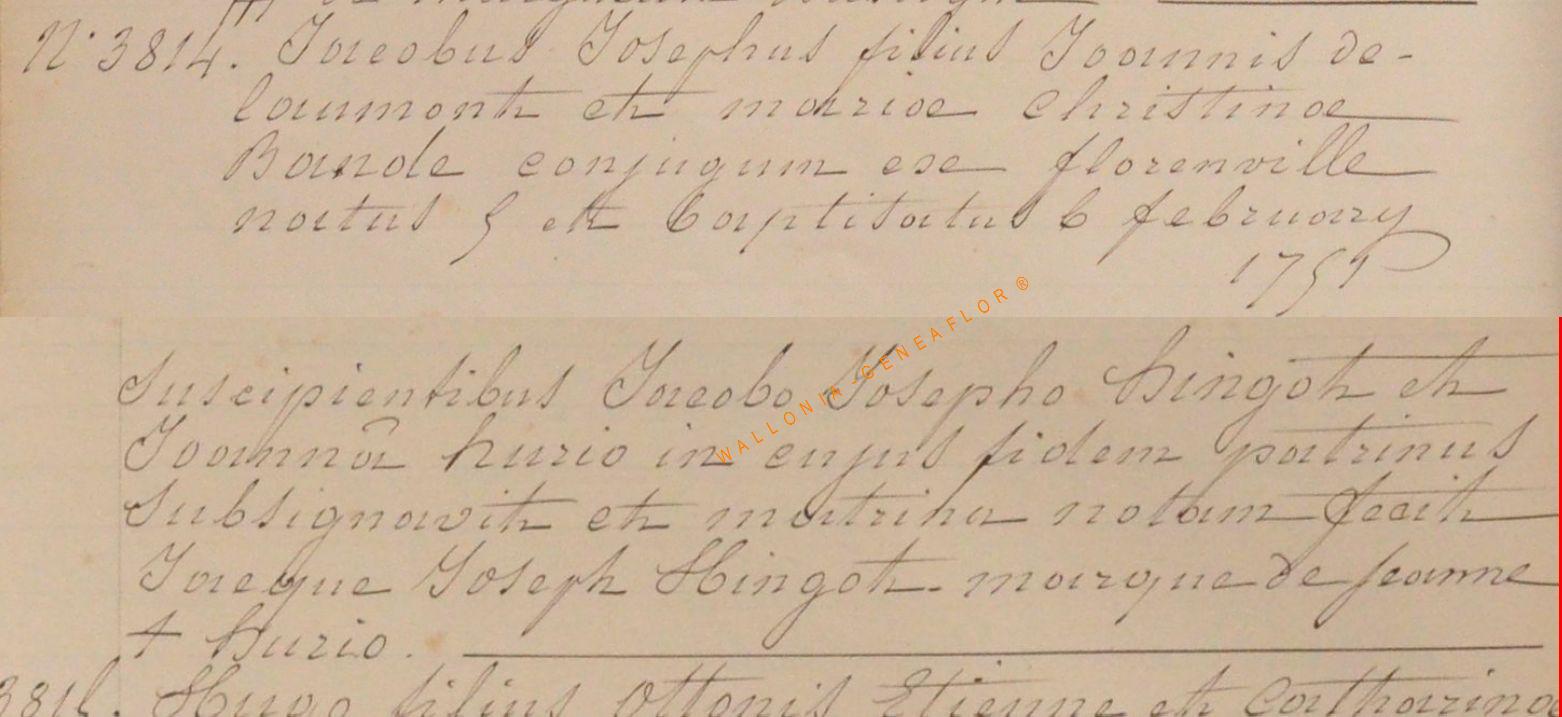 N° 3814. Jacobus Josephus filius Joannis de-
laumont et mariae Christinae
Bande conjugum ese florenville
natus 5 et baptisatus 6 february
1751
WALLONIA-GENEAFLOR ®
Suscipientibus Jacobo Josepho hingot et
Joannâ hurio in cujus fidem patrinus
subsignavit et matrina notam fecit
Jacque Joseph Hingot. marque de jeanne
+ hurio.
Hugo filius Ottonis Etienne et Catharina